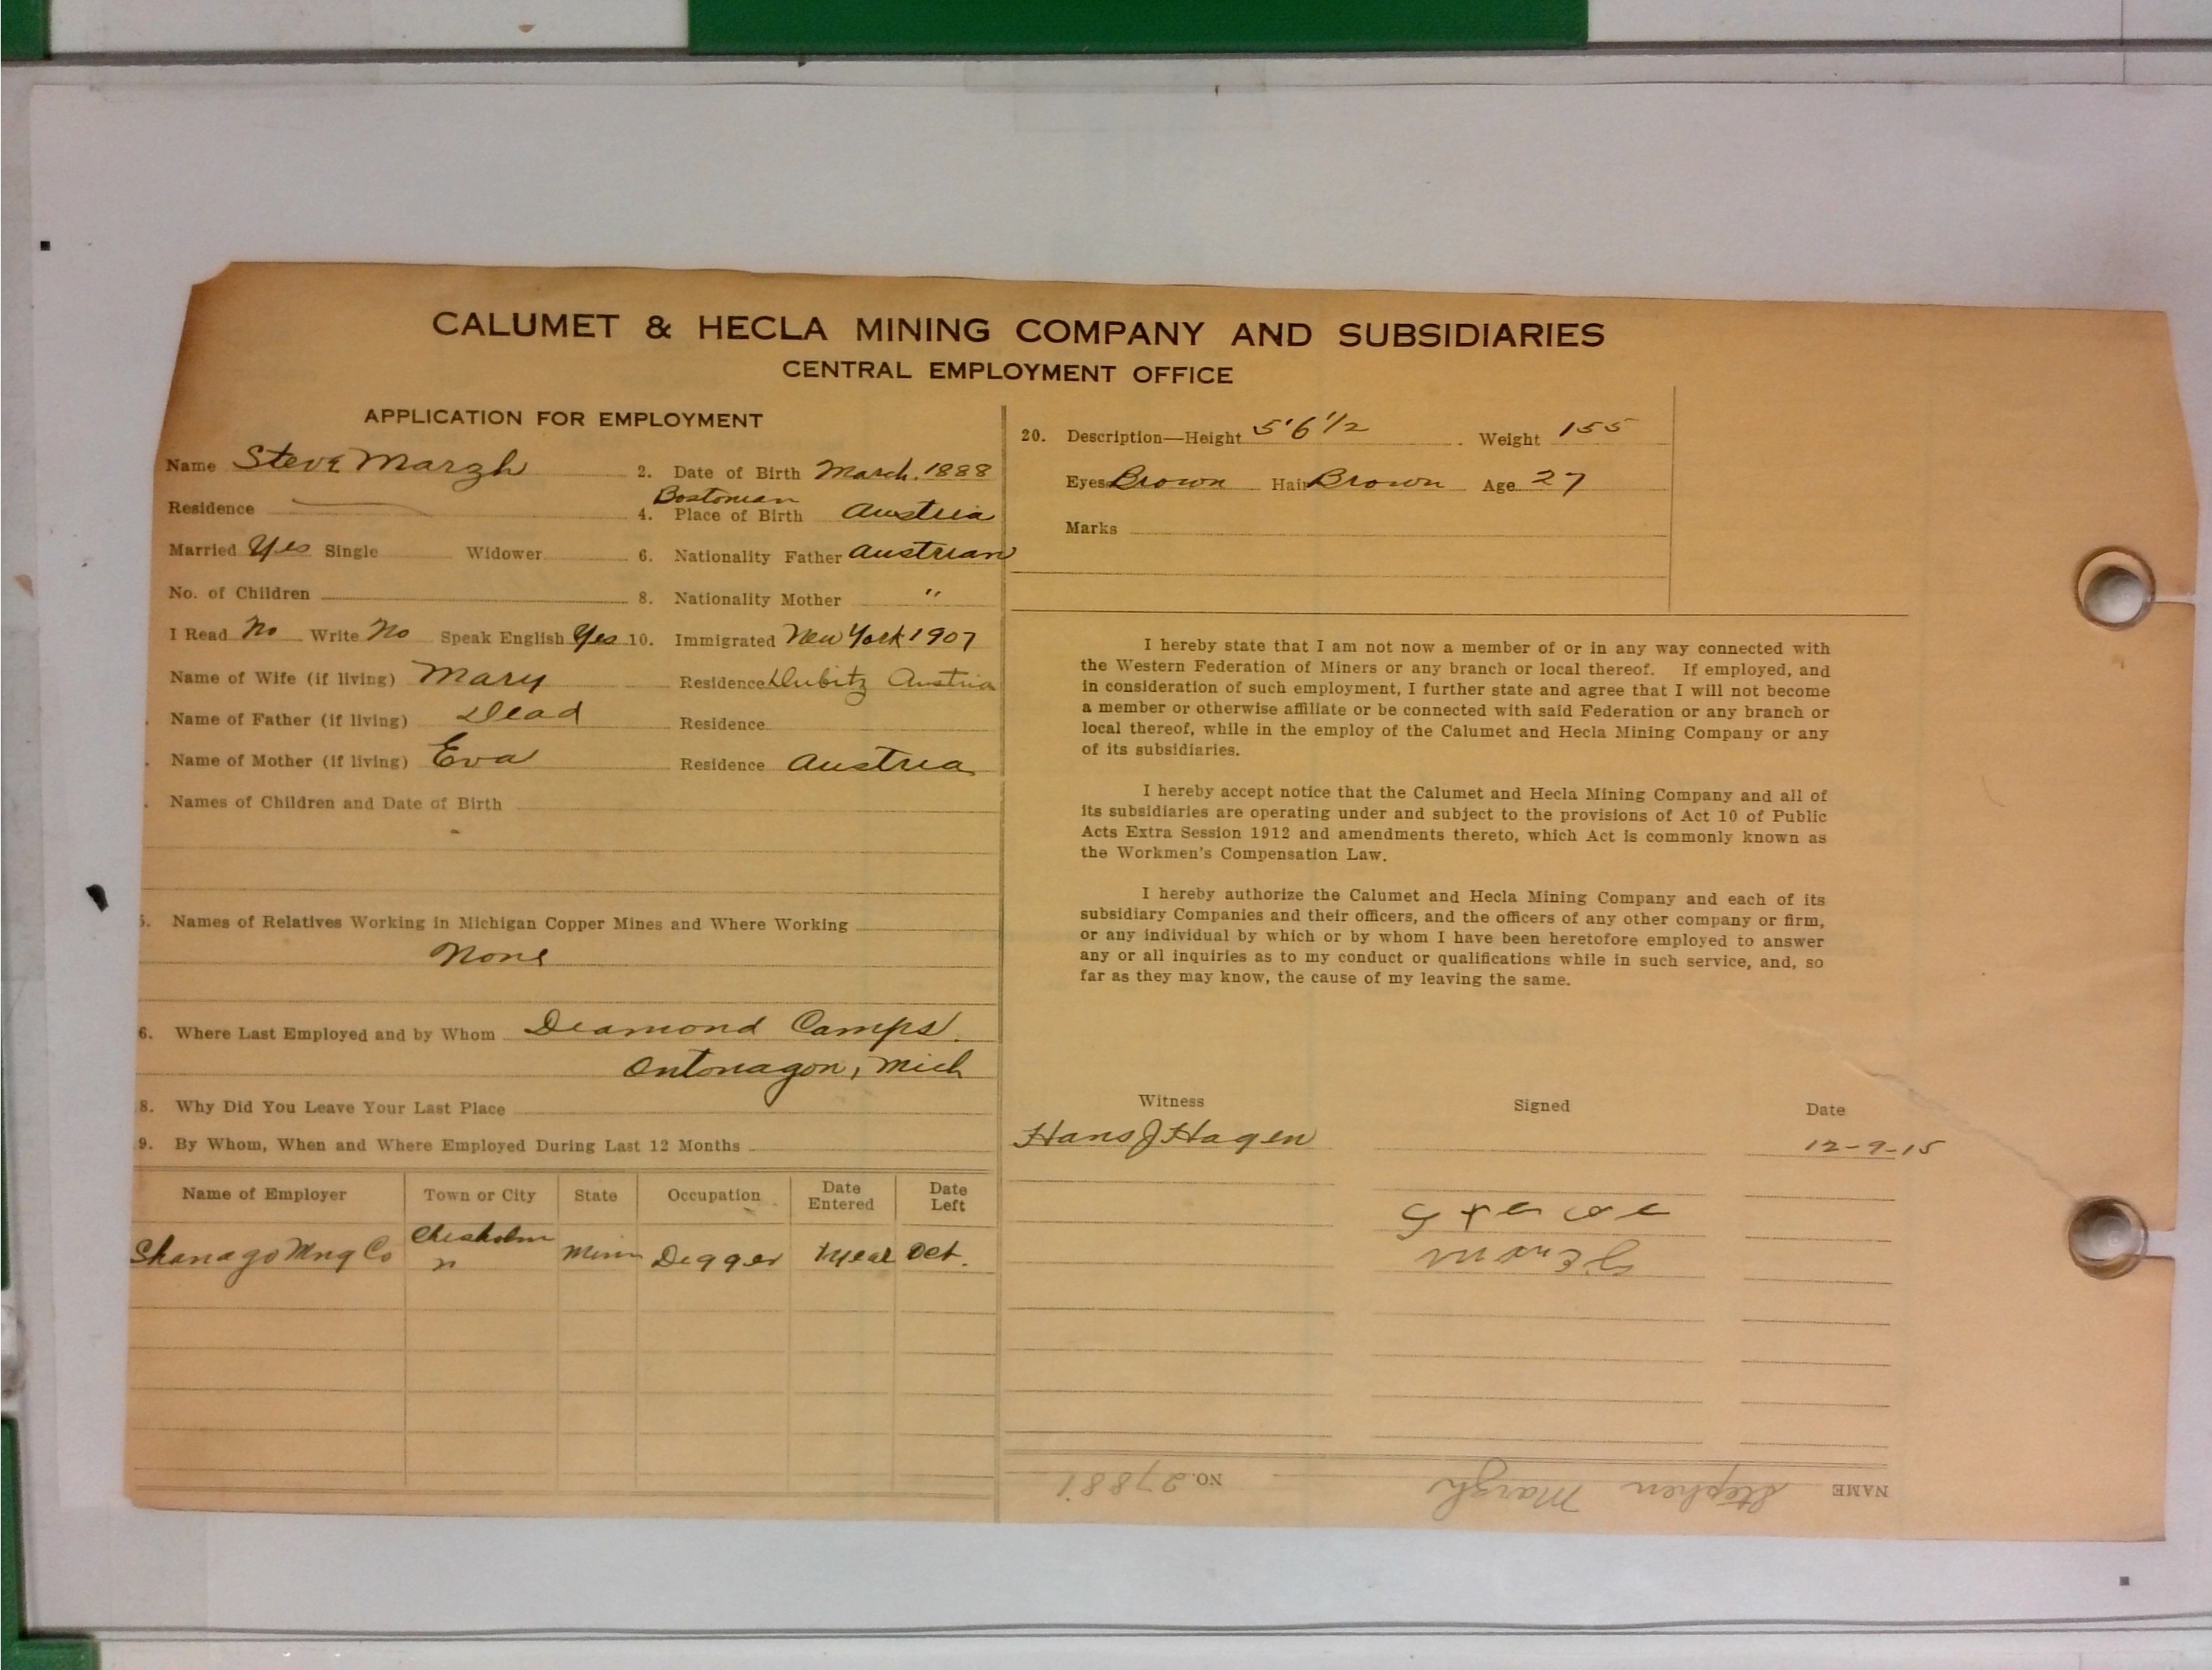 CALUMET & HECLA MINING COMPANY AND SUBSIDIARIES
CENTRAL EMPLOYMENT OFFICE
APPLICATION FOR EMPLOYMENT
Name Steve Marzh 2. Date of Birth March. 1888
Bostonian
Residence 4. Place of Birth Austria
Married Yes Single Widower 6. Nationality Father Austrian
No. of Children 8. Nationality Mother "
I Read No Write No Speak English Yes 10. Immigrated New York 1907
Name of Wife (if living) Mary Residence Dubitz Austria
. Name of Father (if living) Dead Residence
. Name of Mother (if living) Eva Residence Austria
. Names of Children and Date of Birth
5. Names of Relatives Working in Michigan Copper Mines and Where Working
None
6. Where Last Employed and by Whom Diamond Camps.
Ontonagon, Mich
8. Why Did You Leave Your Last Place
9. By Whom, When and Where Employed During Last 12 Months
Name of Employer Town or City State Occupation Date Entered Date Left
Shanago Mng Co Chisholm Minn Digger 1 year Oct.
20. Description—Height 5'6 1/2 Weight 155
Eyes Brown Hair Brown Age 27
Marks
I hereby state that I am not now a member of or in any way connected with
the Western Federation of Miners or any branch or local thereof. If employed, and
in consideration of such employment, I further state and agree that I will not become
a member or otherwise affiliate or be connected with said Federation or any branch or
local thereof, while in the employ of the Calumet and Hecla Mining Company or any
of its subsidiaries.
I hereby accept notice that the Calumet and Hecla Mining Company and all of
its subsidiaries are operating under and subject to the provisions of Act 10 of Public
Acts Extra Session 1912 and amendments thereto, which Act is commonly known as
the Workmen's Compensation Law.
I hereby authorize the Calumet and Hecla Mining Company and each of its
subsidiary Companies and their officers, and the officers of any other company or firm,
or any individual by which or by whom I have been heretofore employed to answer
any or all inquiries as to my conduct or qualifications while in such service, and, so
far as they may know, the cause of my leaving the same.
Witness Signed Date
Hans J Hagen 12-9-15
NAME Stephen Marzh NO. 27881